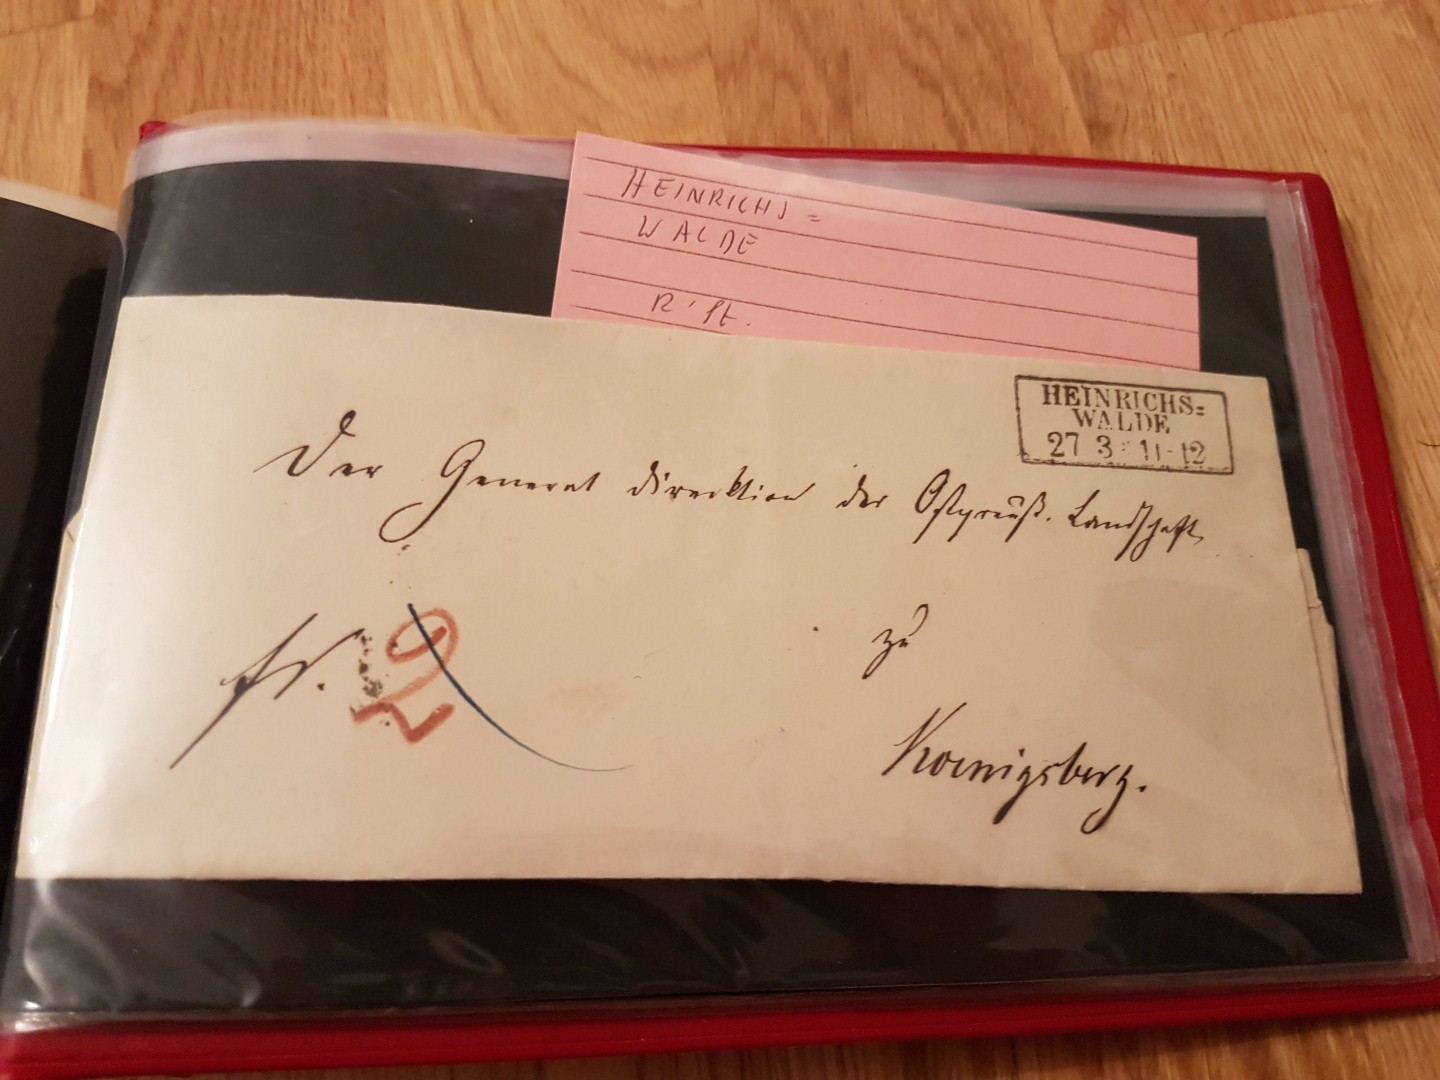 HEINRICHS=
WALDE
R'St.
HEINRICHS=
WALDE
27 3 11-12
Der General direktion der Ostpreuß. Landschaft
fr.
zu
Koenigsberg.